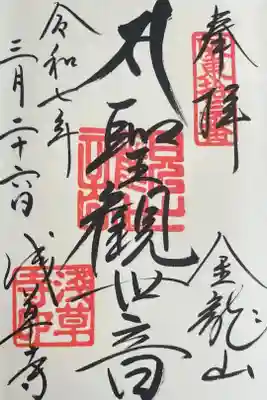 奉拝
金龍山
聖観世音
令和七年
三月二十六日
浅草寺